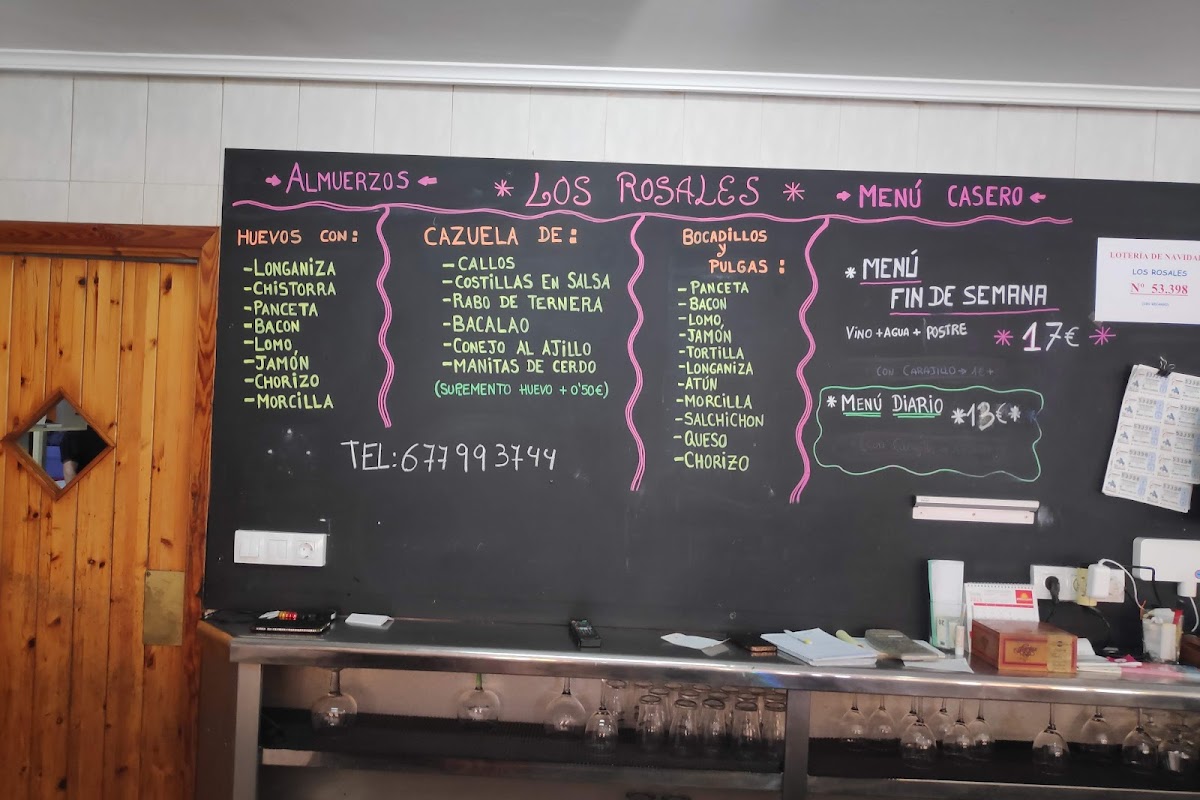 ALMUERZOS
* LOS ROSALES *
MENÚ CASERO
HUEVOS CON:
-LONGANIZA
-CHISTORRA
-PANCETA
-BACON
-LOMO
-JAMÓN
-CHORIZO
-MORCILLA
CAZUELA DE:
-CALLOS
-COSTILLAS EN SALSA
-RABO DE TERNERA
-BACALAO
-CONEJO AL AJILLO
-MANITAS DE CERDO
(SUPEMENTO HUEVO + 0'50€)
TEL: 677993744
BOCADILLOS
y
PULGAS:
-PANCETA
-BACON
-LOMO
-JAMÓN
-TORTILLA
-LONGANIZA
-ATÚN
-MORCILLA
-SALCHICHON
-QUESO
-CHORIZO
* MENÚ
FIN DE SEMANA
VINO + AGUA + POSTRE
* 17€ *
CON CARAJILLO → 1€ +
* MENÚ DIARIO
*13€*
LOTERIA DE NAVIDAD
LOS ROSALES
Nº 53.398